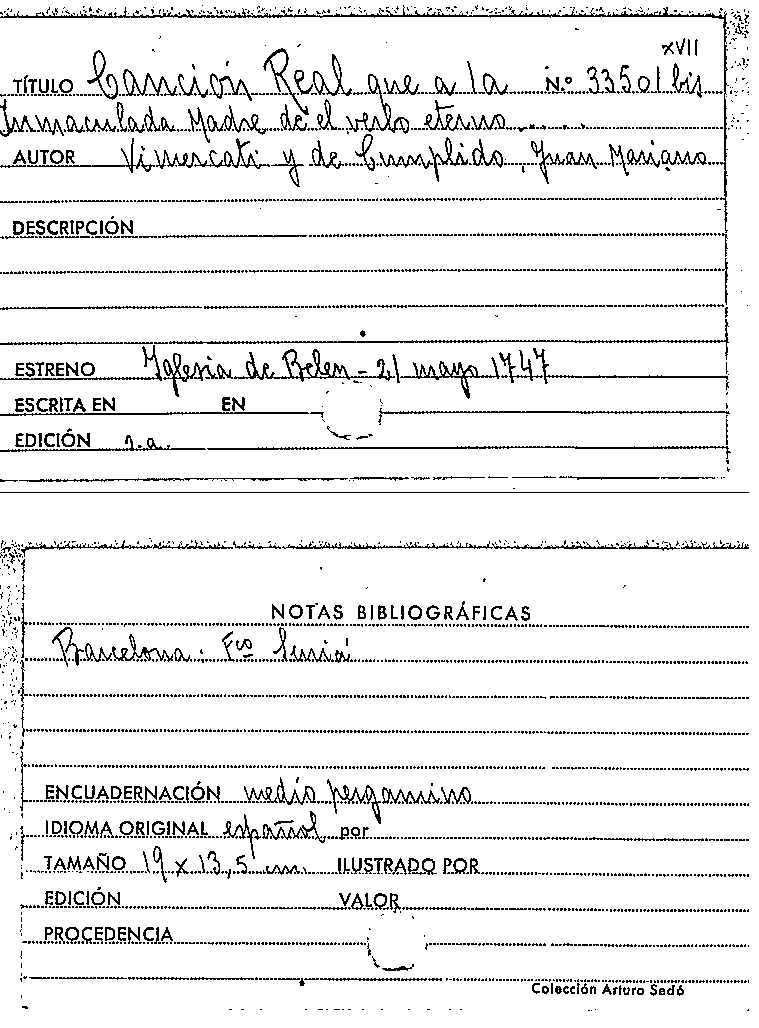 XVII
TÍTULO Canción Real que a la N.º 33501 bis
Inmaculada Madre de el verbo eterno......
AUTOR Vimercati y de Cumplido, Juan Mariano
DESCRIPCIÓN
ESTRENO Iglesia de Belen - 21 mayo 1747
ESCRITA EN EN
EDICIÓN s.a.
NOTAS BIBLIOGRÁFICAS
Barcelona: Fco Suriá
ENCUADERNACIÓN medio pergamino
IDIOMA ORIGINAL español por
TAMAÑO 19 x 13,5 cm. ILUSTRADO POR
EDICIÓN VALOR
PROCEDENCIA
Colección Arturo Sedó